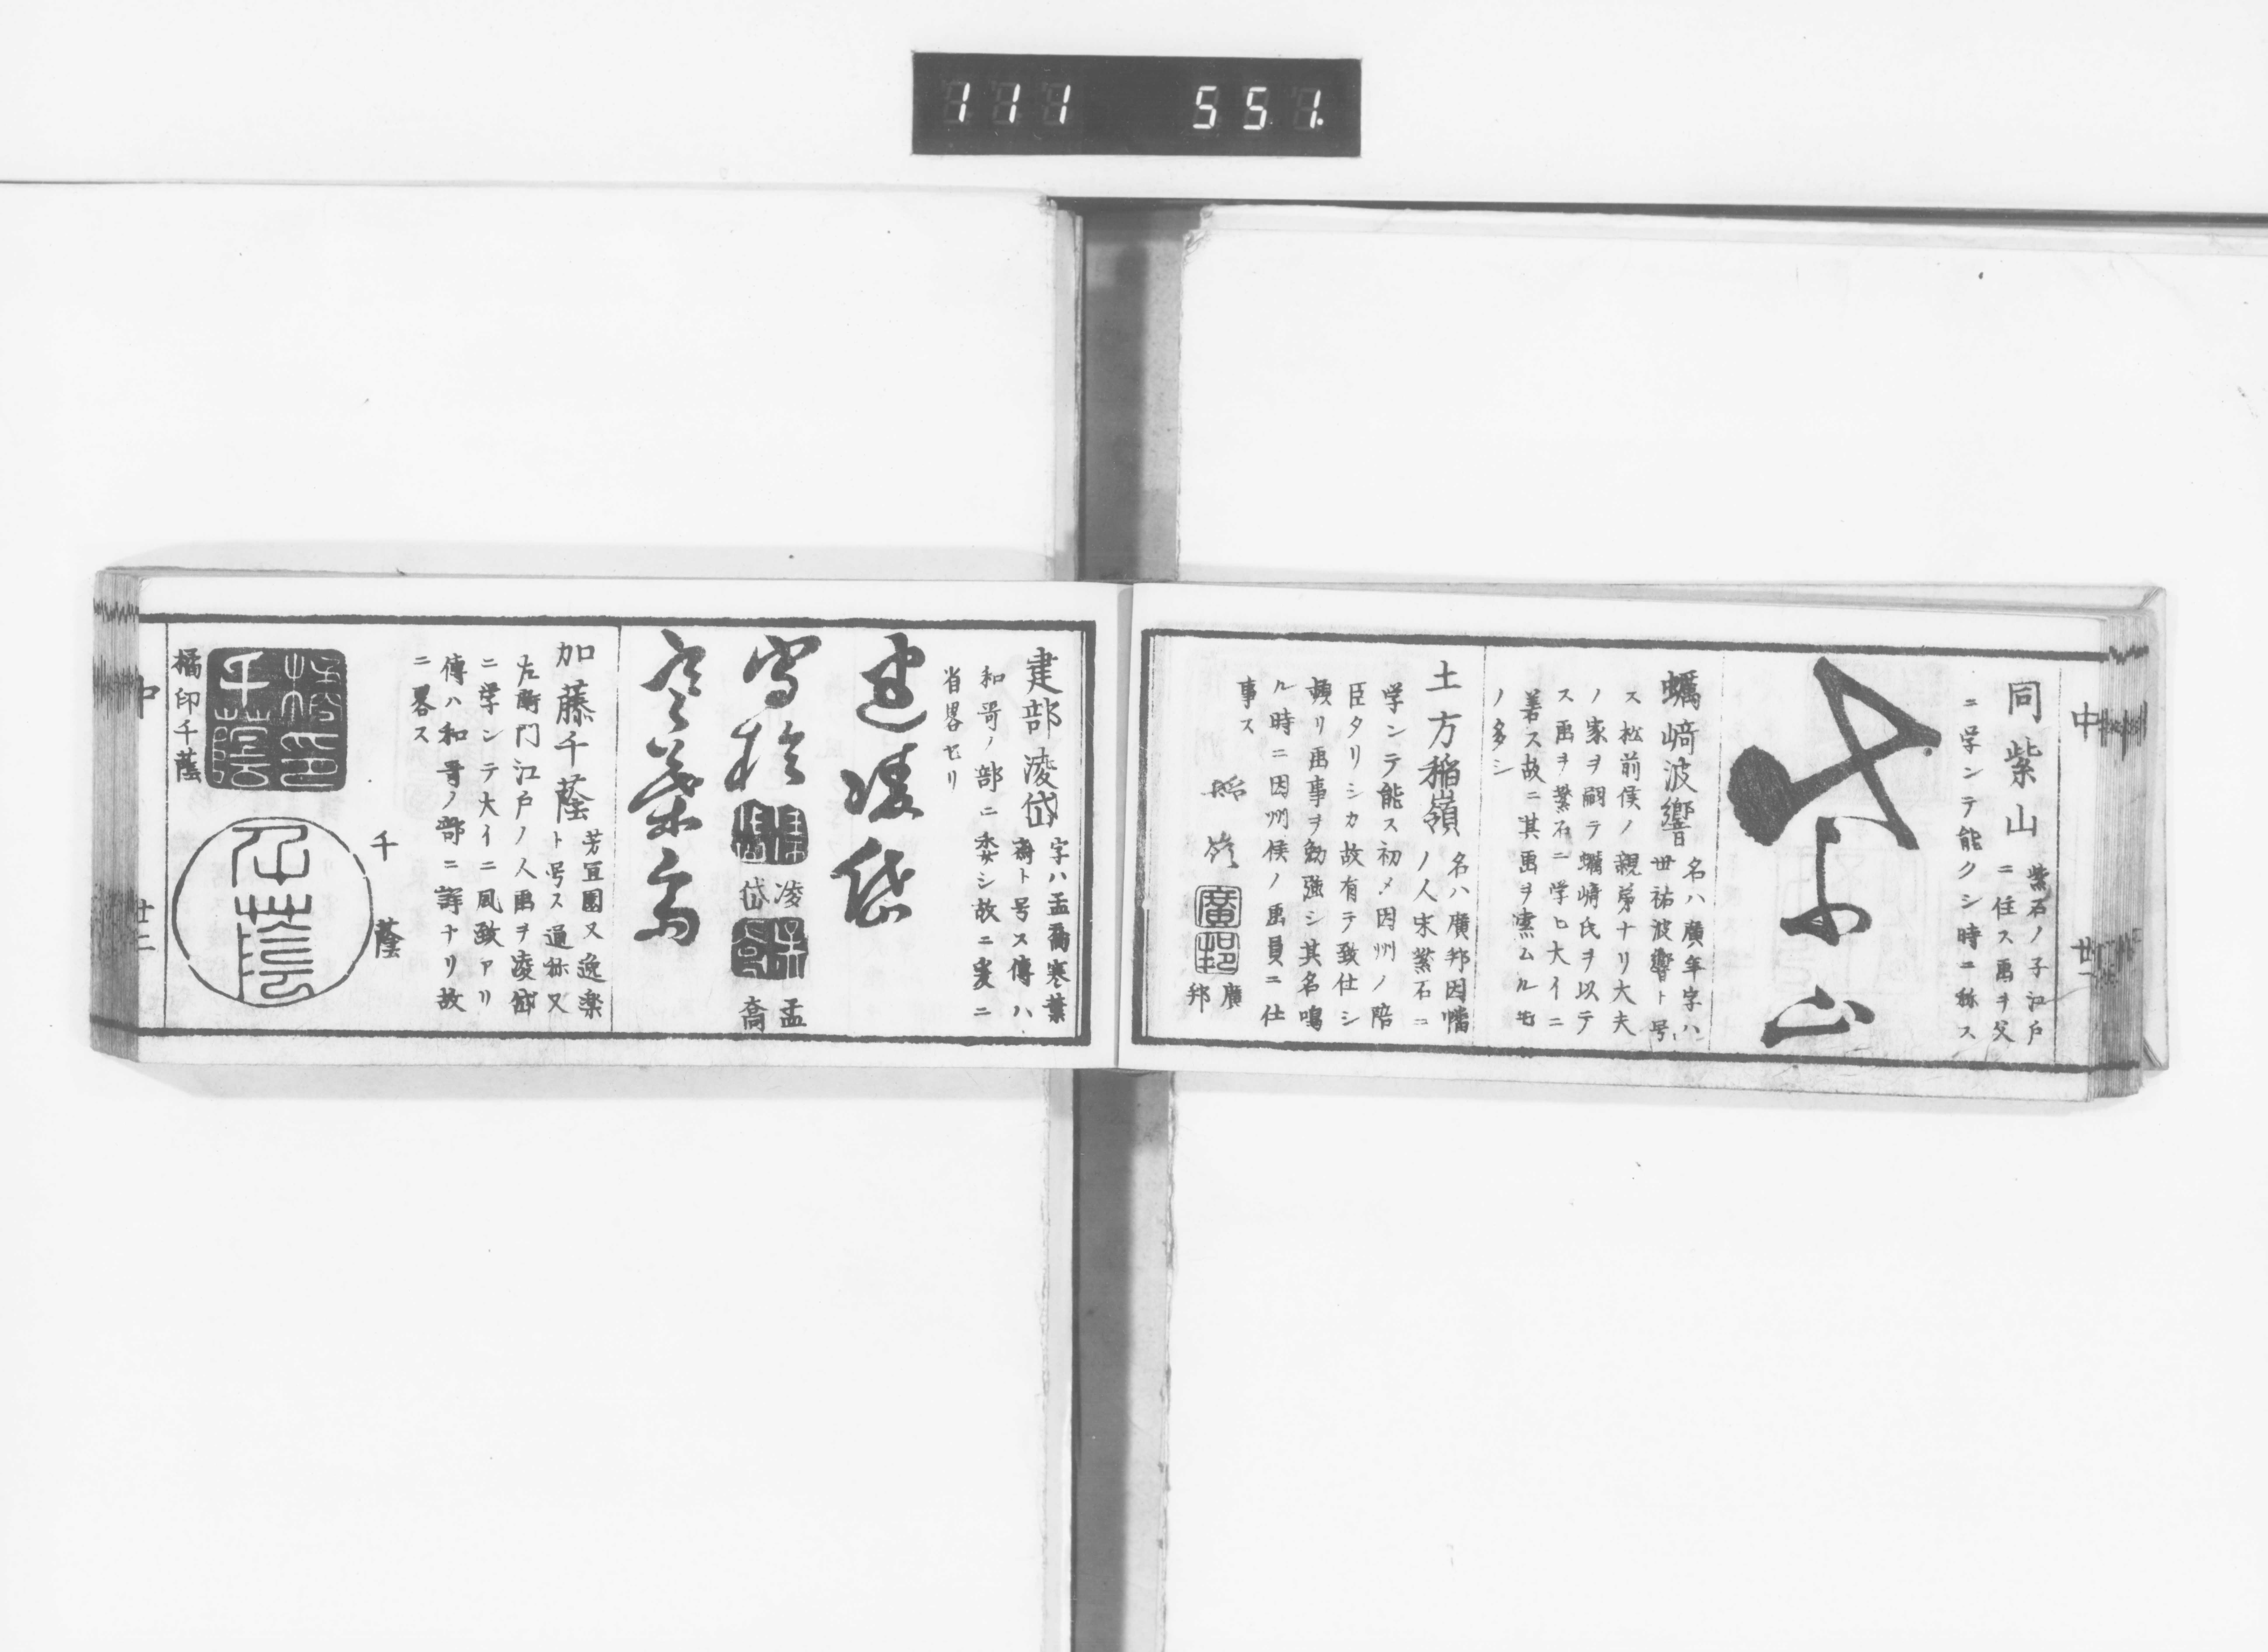 111 551.
中
廿一
同紫山
紫石ノ子江戸
ニ住ス画ヲ父
ニ学ンテ能クシ時ニ称ス
山
蠣﨑波響
名ハ廣年字ハ
世祐波響ト号
ス松前侯ノ親弟ナリ大夫
ノ家ヲ嗣テ蠣﨑氏ヲ以テ
ス画ヲ紫石ニ学ヒ大イニ
善ス故ニ其画ヲ需ムルモ
ノ多シ
土方稲嶺
名ハ廣邦因幡
ノ人宋紫石ニ
学ンテ能ス初メ因州ノ陪
臣タリシカ故有テ致仕シ
頻リ画事ヲ勉強シ其名鳴
ル時ニ因州侯ノ画員ニ仕
事ス
稲嶺
廣邦
廣
邦
建部凌岱
字ハ孟喬寒葉
斎ト号ス傳ハ
和哥ノ部ニ委シ故ニ爰ニ
省畧セリ
建凌岱
凌
岱
孟
喬
寒葉斎
加藤千蔭
芳宜園又逸楽
ト号ス通称又
左衛門江戸ノ人画ヲ凌岱
ニ学ンテ大イニ風致アリ
傳ハ和哥ノ部ニ詳ナリ故
ニ畧ス
千蔭
橘印千蔭
千蔭
橘印千蔭
中
廿二